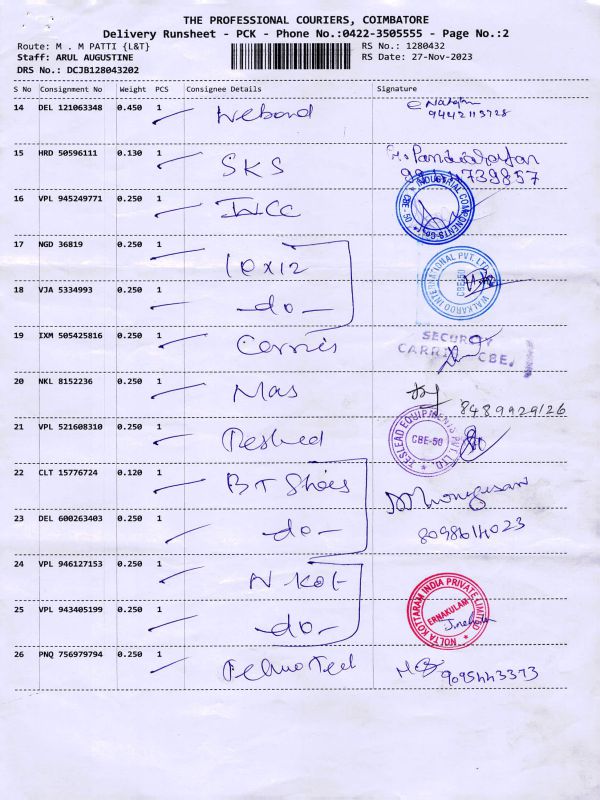 THE PROFESSIONAL COURIERS, COIMBATORE
Delivery Runsheet - PCK - Phone No.:0422-3505555 - Page No.:2
Route: M . M PATTI {L&T} RS No.: 1280432
Staff: ARUL AUGUSTINE RS Date: 27-Nov-2023
DRS No.: DCJB128043202
S No Consignment No Weight PCS Consignee Details Signature
14 DEL 121063348 0.450 1 Webond
9442113728
15 HRD 50596111 0.130 1 SKS
16 VPL 945249771 0.250 1 INCC INDUSTRIAL COMPONENTS CBE-50
17 NGD 36819 0.250 1 10x12
WALKAROO INTERNATIONAL PVT. LTD. CBE-50
18 VJA 5334993 0.250 1 -do-
19 IXM 505425816 0.250 1 SECURITY
CARRI CBE.
20 NKL 8152236 0.250 1 Mas
8489929126
21 VPL 521608310 0.250 1 TESLEAD EQUIPMENTS PVT. LTD. CBE-50
22 CLT 15776724 0.120 1 BT Shoes
23 DEL 600263403 0.250 1 -do- 8098614023
24 VPL 946127153 0.250 1 N Kot
25 VPL 943405199 0.250 1 -do- NOLTA KOTTARAM INDIA PRIVATE LIMITED ERNAKULAM
26 PNQ 756979794 0.250 1 9095443373